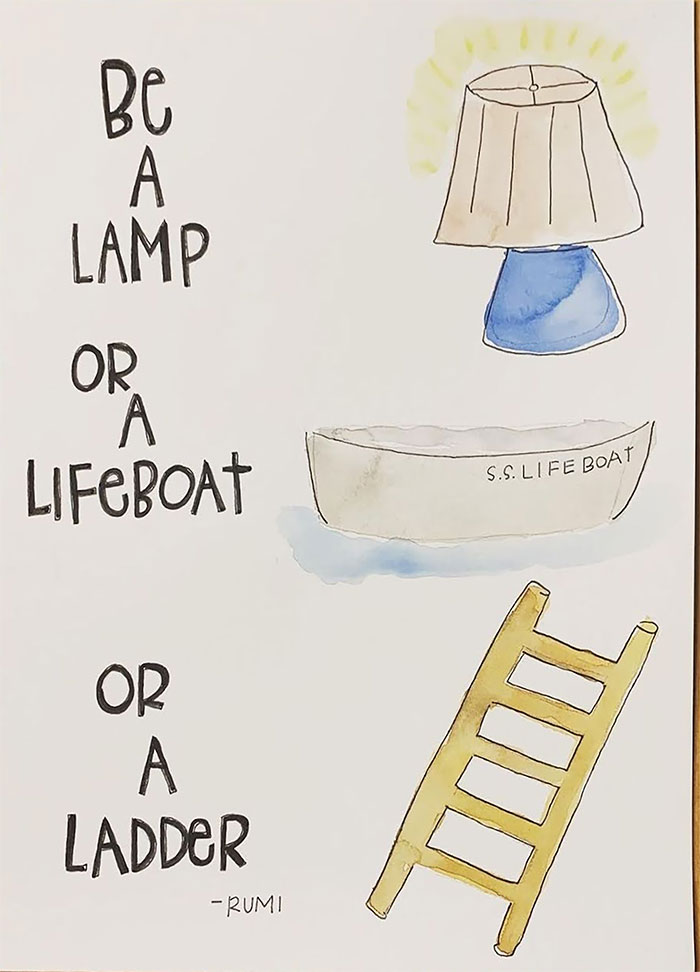 Be
A
LAMP
OR
A
LIFeBOAt
S.S. LIFE BOAT
OR
A
LADDeR
-RUMI